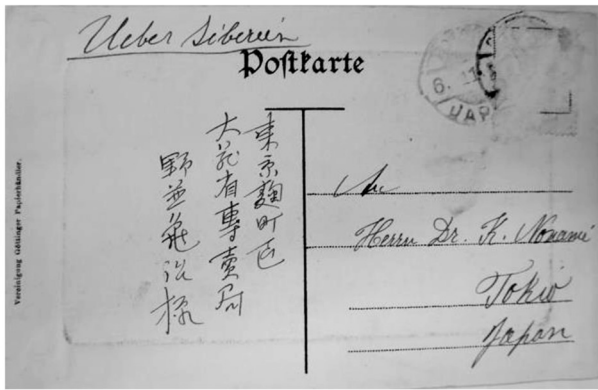 Ueber Siberien
Postkarte
6. 11
JAP
東京麹町区
大蔵省專賣局
野並亀治様
An
Herrn Dr. K. Nonami
Tokio
Japan
Vereinigung Göttinger Papierhändler.